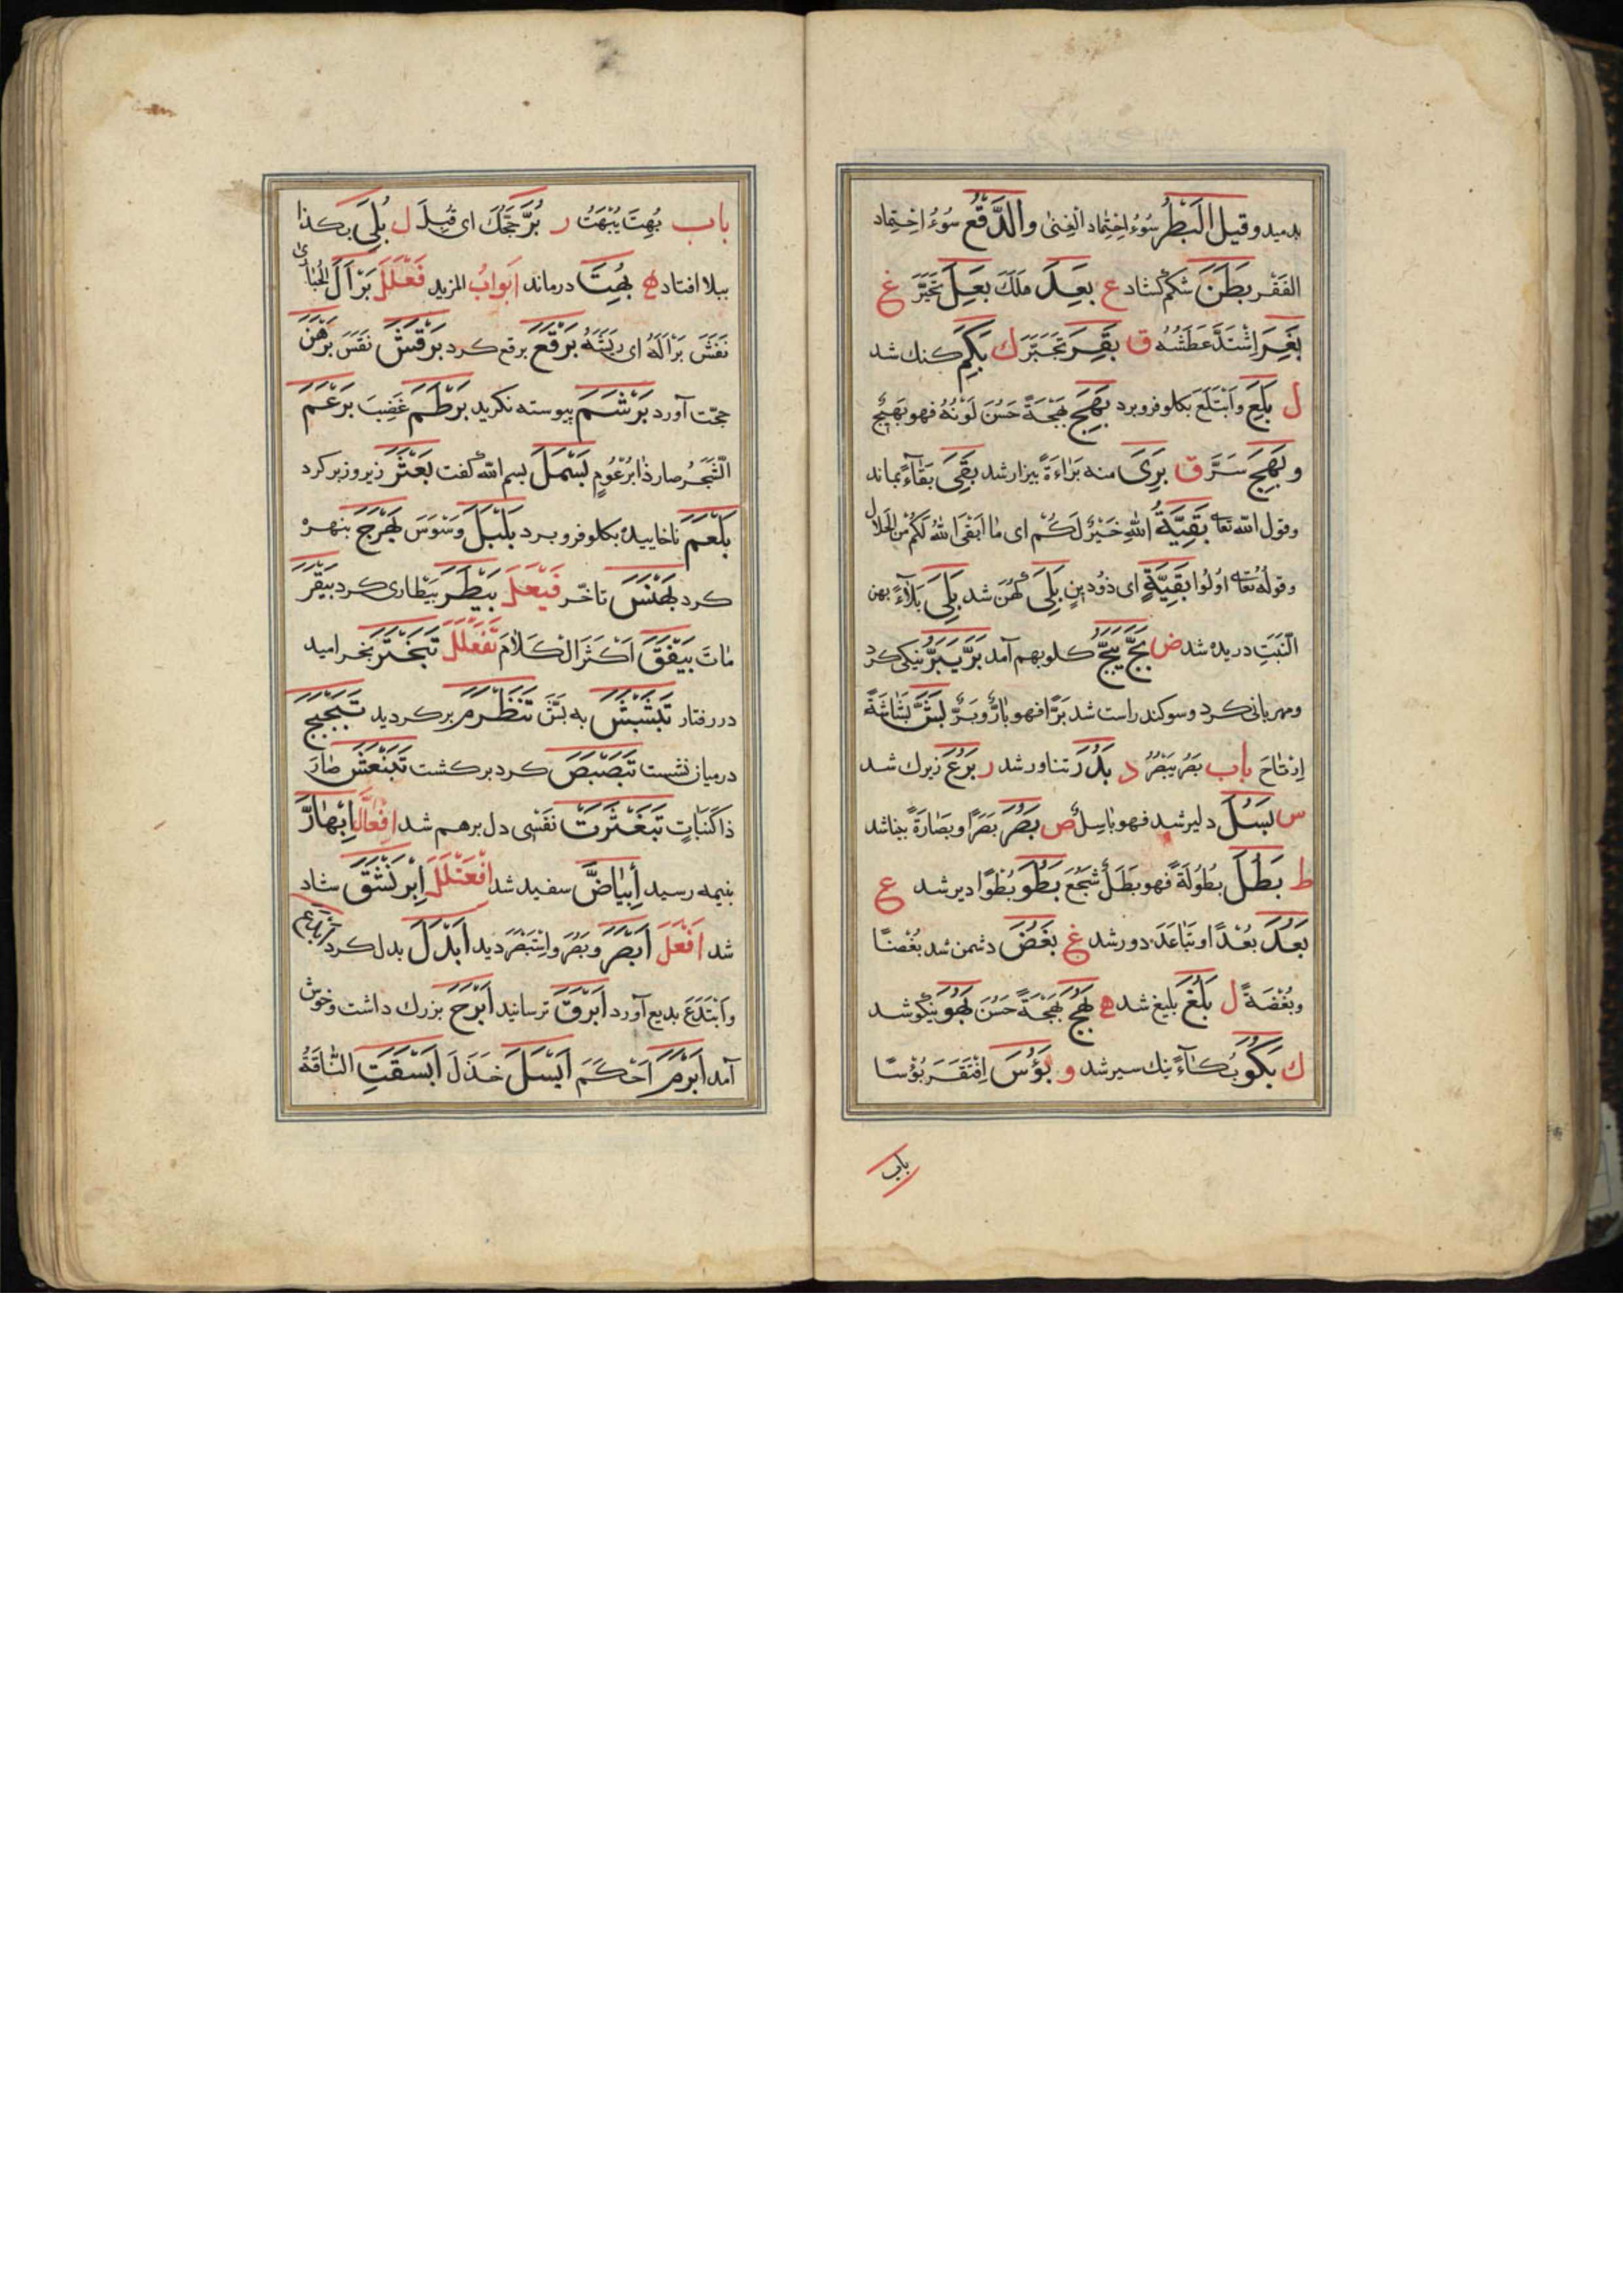 بدمید و قیل البَطَر سُوءُ اِحْتِماد الْغِنٰی والدَّقَع سُوءُ احْتِماد
الفَقْر بَطَنَ شکم کشاد ع بَعِدَ هَلَكَ بَعِلَ تَحَيَّرَ غ
بَغِرَ اِشْتَدَّ عَطَشُهُ ق بَقِرَ تَحَيَّرَ ك بَكِمَ کنك شد
ل بَلِعَ وَابْتَلَعَ بکلو فرو برد بَهِجَ بَهْجَةً حَسُنَ لَوْنُهُ فهو بَهِيجٌ
و بَهِجَ سَرَّ ق بَرِئَ منه بَرَاءَةً بیزار شد بَقِیَ بَقَآءً بماند
وقول الله تعا بَقِيَّةُ اللهِ خَيْرٌ لَكُمْ ای مٰا اَبْقَی اللهُ لَكُمْ مِنَ الحَلال
وقولُهُ تعا اُولُوا بَقِيَّةٍ ای ذوُ دينٍ بَلِیَ کُهَن شد بَلِیَ بَلآءً بهن
النَبَتِ دریده شد ض بَحَّ يَبَحُّ کلو بهم آمد بَرَّ يَبَرُّ نیکی کرد
و مهربانی کرد و سوکند راست شد بَرًّا فهو بٰارٌّ وبَرٌّ بَشَّ بَشٰاشَةً
اِرْتٰاحَ باب بَصُرَ يَبْصُرُ د بَدُرَ تناور شد ر بَرُعَ زیرك شد
س بَسُلَ دلیر شد فهو بٰاسِلٌ ص بَصُرَ بَصَرًا وبَصٰارَةً بینا شد
ط بَطُلَ بُطُولَةً فهو بَطَلٌ شَجُعَ بَطُوَ بُطْوًا دیر شد ع
بَعُدَ بُعْدًا او تَبٰاعَدَ دور شد غ بَغُضَ دشمن شد بُغْضًا
وبُغْضَةً ل بَلُغَ بلیغ شد ه بَهُجَ بَهْجَةً حَسُنَ بَهُوَ نیکو شد
ك بَكُوَ بُكآءً نیك سیر شد و بَؤُسَ اِفْتَقَرَ بُؤْسًا
باب
باب بُهِتَ يُبْهَتُ ر بُرَّ حَجُّكَ ای قُبِلَ ل بُلِیَ بکذا
ببلا افتاد ه بُهِتَ درماند اَبوابُ المزید فَعْلَلَ بَرْأَلَ الحُبٰارٰی
نَفَشَ بَرْاَلَهُ ای ریشَهُ بَرْقَعَ برقع کرد بَرْقَشَ نَقَشَ بَرْهَنَ
حجّت آورد بَرْشَمَ پیوسته نکرید بَرْطَمَ غَضِبَ بَرْعَمَ
الشَّجَرُ صار ذٰا بُرْعُومٍ بَسْمَلَ بسم الله کفت بَعْثَرَ زیر و زبر کرد
بَلْعَمَ ناخاییده بکلو فرو برد بَلْبَلَ وَسْوَسَ بَهْرَجَ بنهره
کرد بَهْنَسَ تاخّر فَيْعَلَ بَيْطَرَ بیطاری کرد بَيْقَرَ
مٰاتَ بَيْقَقَ اَكْثَرَ الْكَلٰامَ تَفَعْلَلَ تَبَخْتَرَ بخرامید
در رفتار تَبَشْبَشَ به بَشَّ تَبَظْرَمَ بر کردید تَبَجْبَجَ
درمیان نشست تَبَصْبَصَ کرد برکشت تَبَنْعَشَ صٰارَ
ذٰا کَنَبٰاتٍ تَبَغْثَرَتْ نَفْسی دل برهم شد اِفْعٰالَّ اِبْهٰارَّ
بنیمه رسید اِبْيٰاضَّ سفید شد اِفْعَنْلَلَ اِبْرَنْشَقَ شاد
شد اَفْعَلَ اَبْصَرَ وبَصُرَ واِسْتَبْصَرَ دید اَبْدَلَ بدل کرد اَبْدَعَ
وَابْتَدَعَ بدیع آورد اَبْرَقَ ترسانید اَبْرَحَ بزرك داشت وخوش
آمد اَبْرَمَ اَحْكَمَ اَبْسَلَ خَذَلَ اَبْسَقَتِ النّٰاقَةُ